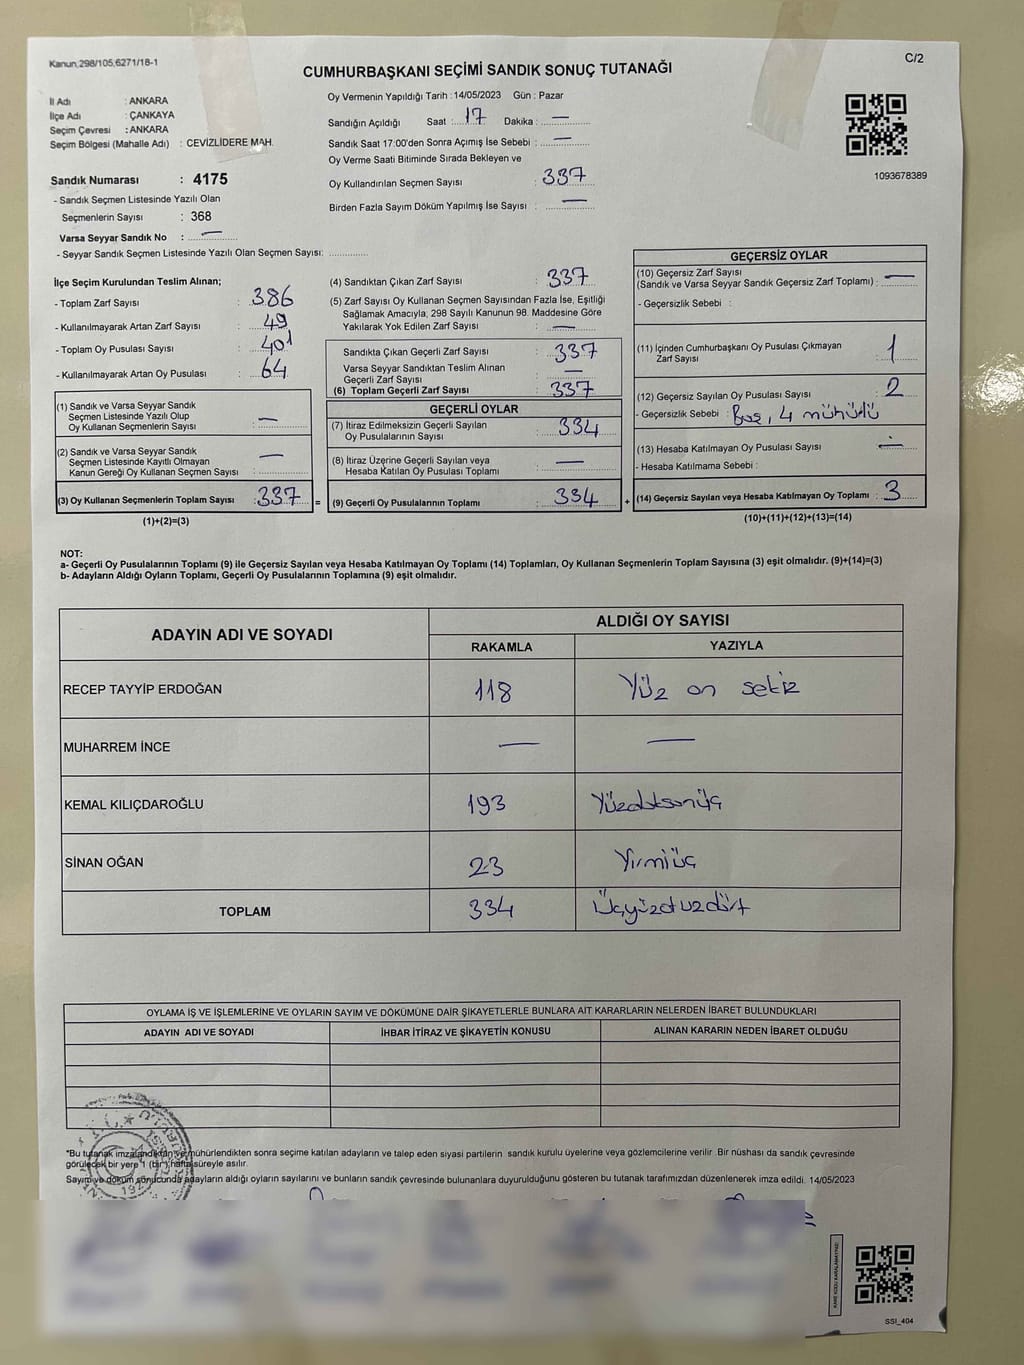 Kanun,298/105,6271/18-1
C/2
CUMHURBAŞKANI SEÇİMİ SANDIK SONUÇ TUTANAĞI
İl Adı : ANKARA
İlçe Adı : ÇANKAYA
Seçim Çevresi : ANKARA
Seçim Bölgesi (Mahalle Adı) : CEVİZLİDERE MAH.
Sandık Numarası : 4175
- Sandık Seçmen Listesinde Yazılı Olan
Seçmenlerin Sayısı : 368
Varsa Seyyar Sandık No : —
- Seyyar Sandık Seçmen Listesinde Yazılı Olan Seçmen Sayısı: ..............
Oy Vermenin Yapıldığı Tarih : 14/05/2023 Gün : Pazar
Sandığın Açıldığı Saat : 17 Dakika : —
Sandık Saat 17:00'den Sonra Açımış İse Sebebi : —
Oy Verme Saati Bitiminde Sırada Bekleyen ve
Oy Kullandırılan Seçmen Sayısı : 337
Birden Fazla Sayım Döküm Yapılmış İse Sayısı : —
1093678389
İlçe Seçim Kurulundan Teslim Alınan;
- Toplam Zarf Sayısı : 386
- Kullanılmayarak Artan Zarf Sayısı : 49
- Toplam Oy Pusulası Sayısı : 401
- Kullanılmayarak Artan Oy Pusulası : 64
(1) Sandık ve Varsa Seyyar Sandık
Seçmen Listesinde Yazılı Olup
Oy Kullanan Seçmenlerin Sayısı : —
(2) Sandık ve Varsa Seyyar Sandık
Seçmen Listesinde Kayıtlı Olmayan
Kanun Gereği Oy Kullanan Seçmen Sayısı : —
(3) Oy Kullanan Seçmenlerin Toplam Sayısı : 337 =
(1)+(2)=(3)
(4) Sandıktan Çıkan Zarf Sayısı : 337
(5) Zarf Sayısı Oy Kullanan Seçmen Sayısından Fazla İse, Eşitliği
Sağlamak Amacıyla, 298 Sayılı Kanunun 98. Maddesine Göre
Yakılarak Yok Edilen Zarf Sayısı : —
Sandıkta Çıkan Geçerli Zarf Sayısı : 337
Varsa Seyyar Sandıktan Teslim Alınan
Geçerli Zarf Sayısı : —
(6) Toplam Geçerli Zarf Sayısı : 337
GEÇERLİ OYLAR
(7) İtiraz Edilmeksizin Geçerli Sayılan
Oy Pusulalarının Sayısı : 334
(8) İtiraz Üzerine Geçerli Sayılan veya
Hesaba Katılan Oy Pusulası Toplamı : —
(9) Geçerli Oy Pusulalarının Toplamı : 334 +
GEÇERSİZ OYLAR
(10) Geçersiz Zarf Sayısı
(Sandık ve Varsa Seyyar Sandık Geçersiz Zarf Toplamı) : —
- Geçersizlik Sebebi :
(11) İçinden Cumhurbaşkanı Oy Pusulası Çıkmayan
Zarf Sayısı : 1
(12) Geçersiz Sayılan Oy Pusulası Sayısı : 2
- Geçersizlik Sebebi : Boş, 4 mühürlü
(13) Hesaba Katılmayan Oy Pusulası Sayısı : —
- Hesaba Katılmama Sebebi :
(14) Geçersiz Sayılan veya Hesaba Katılmayan Oy Toplamı : 3
(10)+(11)+(12)+(13)=(14)
NOT:
a- Geçerli Oy Pusulalarının Toplamı (9) ile Geçersiz Sayılan veya Hesaba Katılmayan Oy Toplamı (14) Toplamları, Oy Kullanan Seçmenlerin Toplam Sayısına (3) eşit olmalıdır. (9)+(14)=(3)
b- Adayların Aldığı Oyların Toplamı, Geçerli Oy Pusulalarının Toplamına (9) eşit olmalıdır.
ADAYIN ADI VE SOYADI
ALDIĞI OY SAYISI
RAKAMLA YAZIYLA
RECEP TAYYİP ERDOĞAN 118 Yüz on sekiz
MUHARREM İNCE — —
KEMAL KILIÇDAROĞLU 193 Yüzdoksanüç
SİNAN OĞAN 23 Yirmiüç
TOPLAM 334 Üçyüzotuzdört
OYLAMA İŞ VE İŞLEMLERİNE VE OYLARIN SAYIM VE DÖKÜMÜNE DAİR ŞİKAYETLERLE BUNLARA AİT KARARLARIN NELERDEN İBARET BULUNDUKLARI
ADAYIN ADI VE SOYADI İHBAR İTİRAZ VE ŞİKAYETİN KONUSU ALINAN KARARIN NEDEN İBARET OLDUĞU
*Bu tutanak imzalandıktan ve mühürlendikten sonra seçime katılan adayların ve talep eden siyasi partilerin sandık kurulu üyelerine veya gözlemcilerine verilir. Bir nüshası da sandık çevresinde
görülecek bir yere 1 (bir) hafta süreyle asılır.
Sayım ve döküm sonucunda adayların aldığı oyların sayılarını ve bunların sandık çevresinde bulunanlara duyurulduğunu gösteren bu tutanak tarafımızdan düzenlenerek imza edildi. 14/05/2023
KARE KODU KARALAMAYINIZ!
SSİ_404